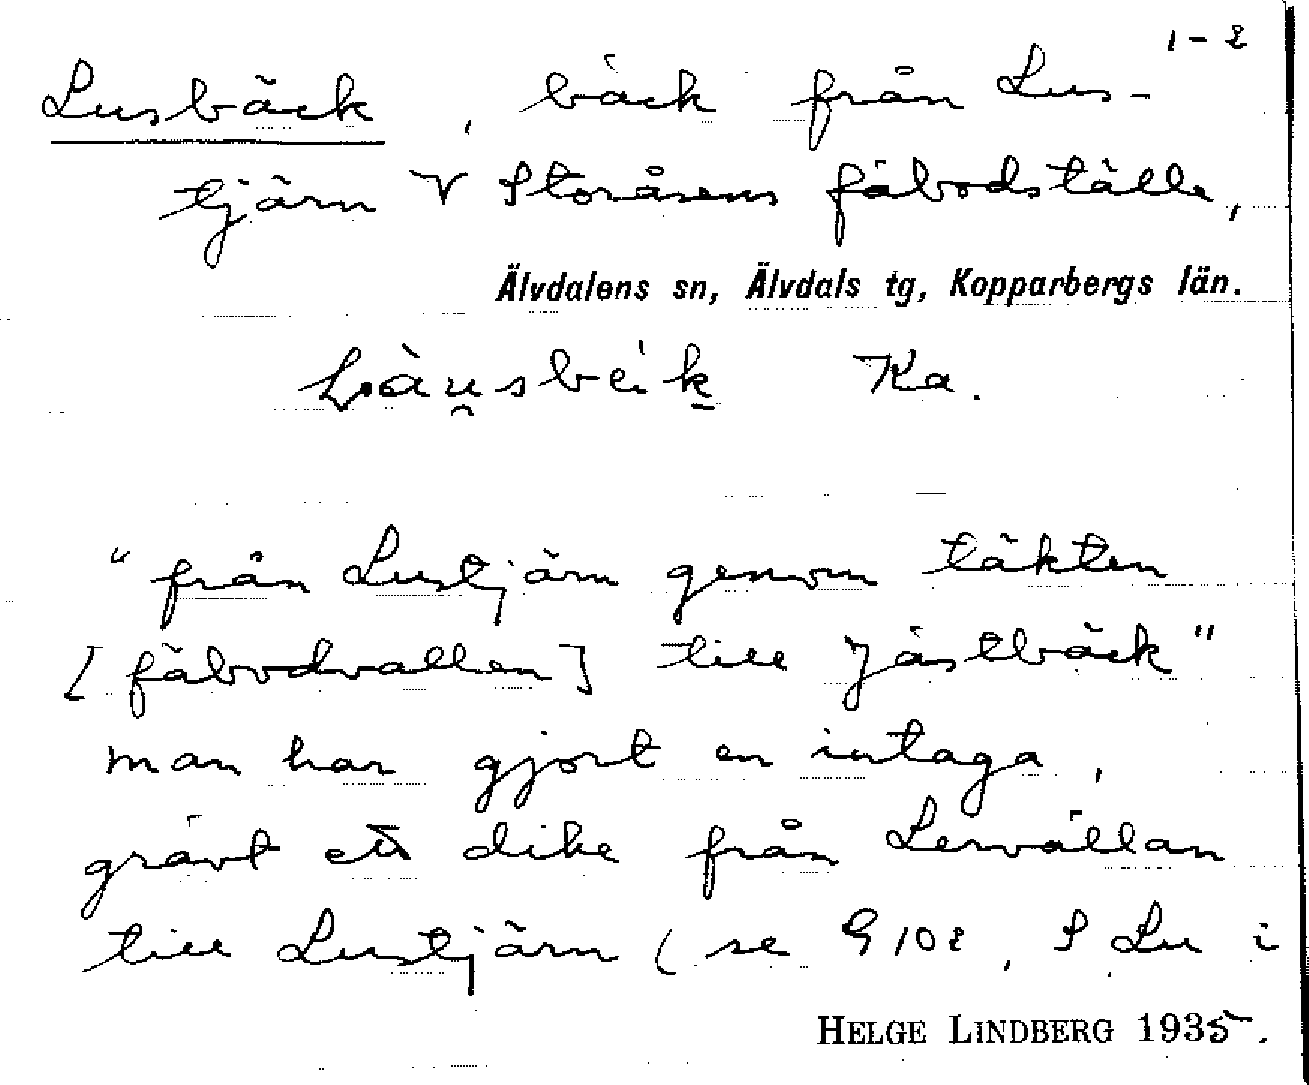 1-2
Lusbäck, bäck från Lus-
tjärn V Storåsens fäbodställe,
Älvdalens sn, Älvdals tg, Kopparbergs län.
Ka.
"från Lustjärn genom täkten
[fäbodvallen] till Jästbäck"
man har gjort en intaga,
grävt ett dike från Lervällan
till Lustjärn (se G 102, S Lu i
HELGE LINDBERG 1935.